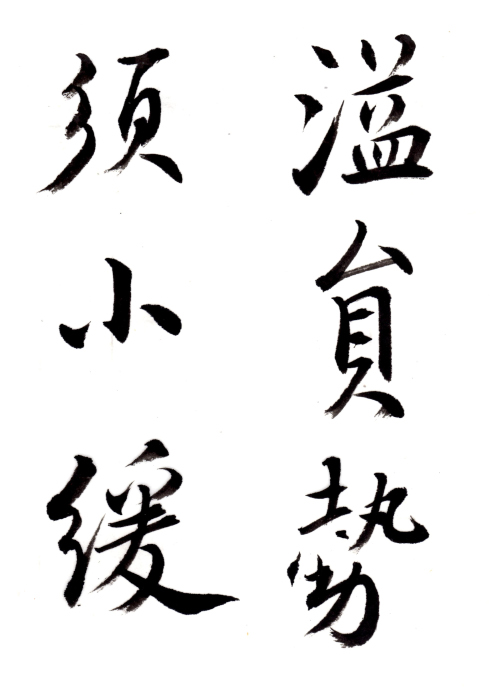 溢貟勢
須小緩